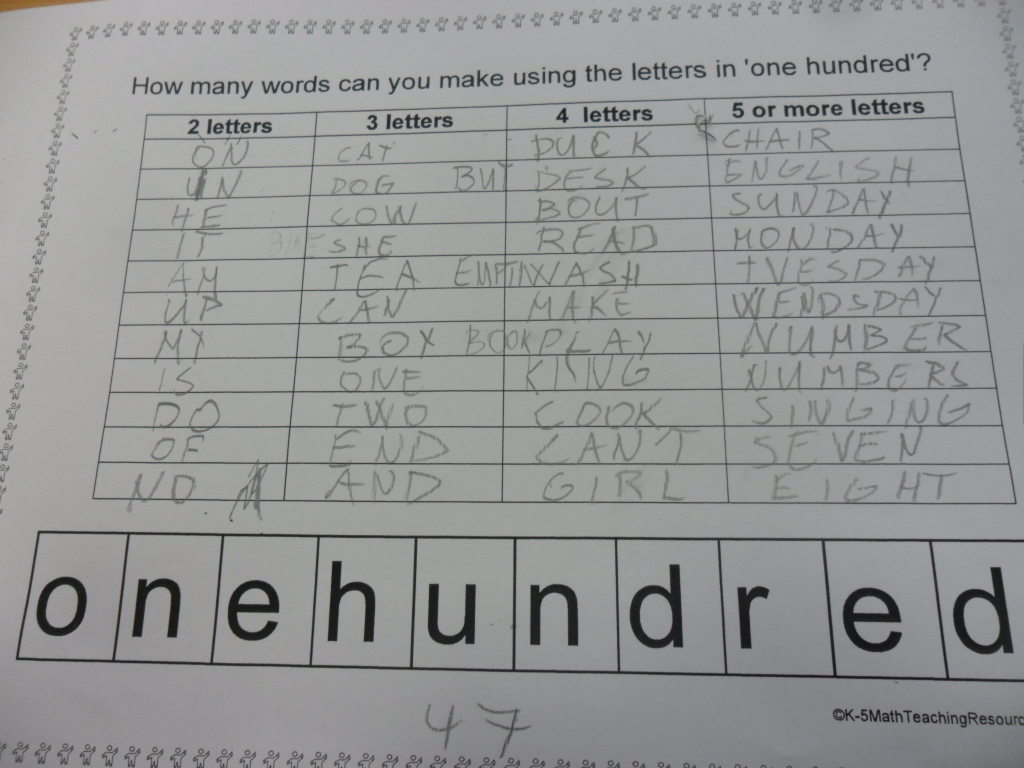 How many words can you make using the letters in 'one hundred'?
2 letters 3 letters 4 letters 5 or more letters
ON CAT DUCK CHAIR
IN DOG BUT DESK ENGLISH
HE COW BOUT SUNDAY
IT BIKE SHE READ MONDAY
AM TEA WASH TVESDAY
UP CAN MAKE WENDSDAY
MY BOX BOOK PLAY NUMBER
IS ONE KING NUMBERS
DO TWO COOK SINGING
OF END CAN'T SEVEN
NO AND GIRL EIGHT
o n e h u n d r e d
47
©K-5MathTeachingResourc